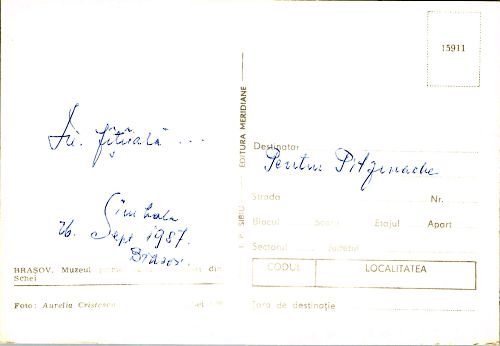 15911
Fii fîtoală ...
26. Sept 1987.
Brasov.
BRAȘOV. Muzeul din
Schei
Foto: Aurelia Cristescu
I. P. SIBIU — EDITURA MERIDIANE
Destinator
Pentru Pitzinache
Strada Nr.
Blocul Scara Etajul Apart
Sectorul Județul
CODUL LOCALITATEA
Țara de destinație